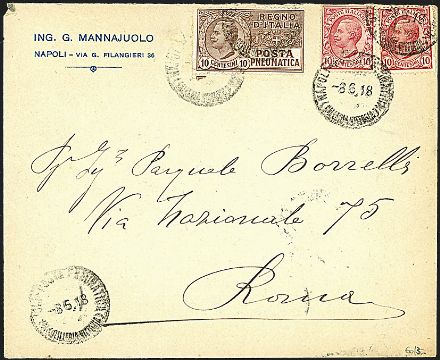 ING. G. MANNAJUOLO
NAPOLI – VIA G. FILANGIERI 36
REGNO
D'ITALIA
POSTA
PNEUMATICA
10 CENTESIMI 10
10 CENTESIMI 10
10 10
-8.6.18
Pasquale Borrelli
Via Nazionale 75
Roma
-8.6.18